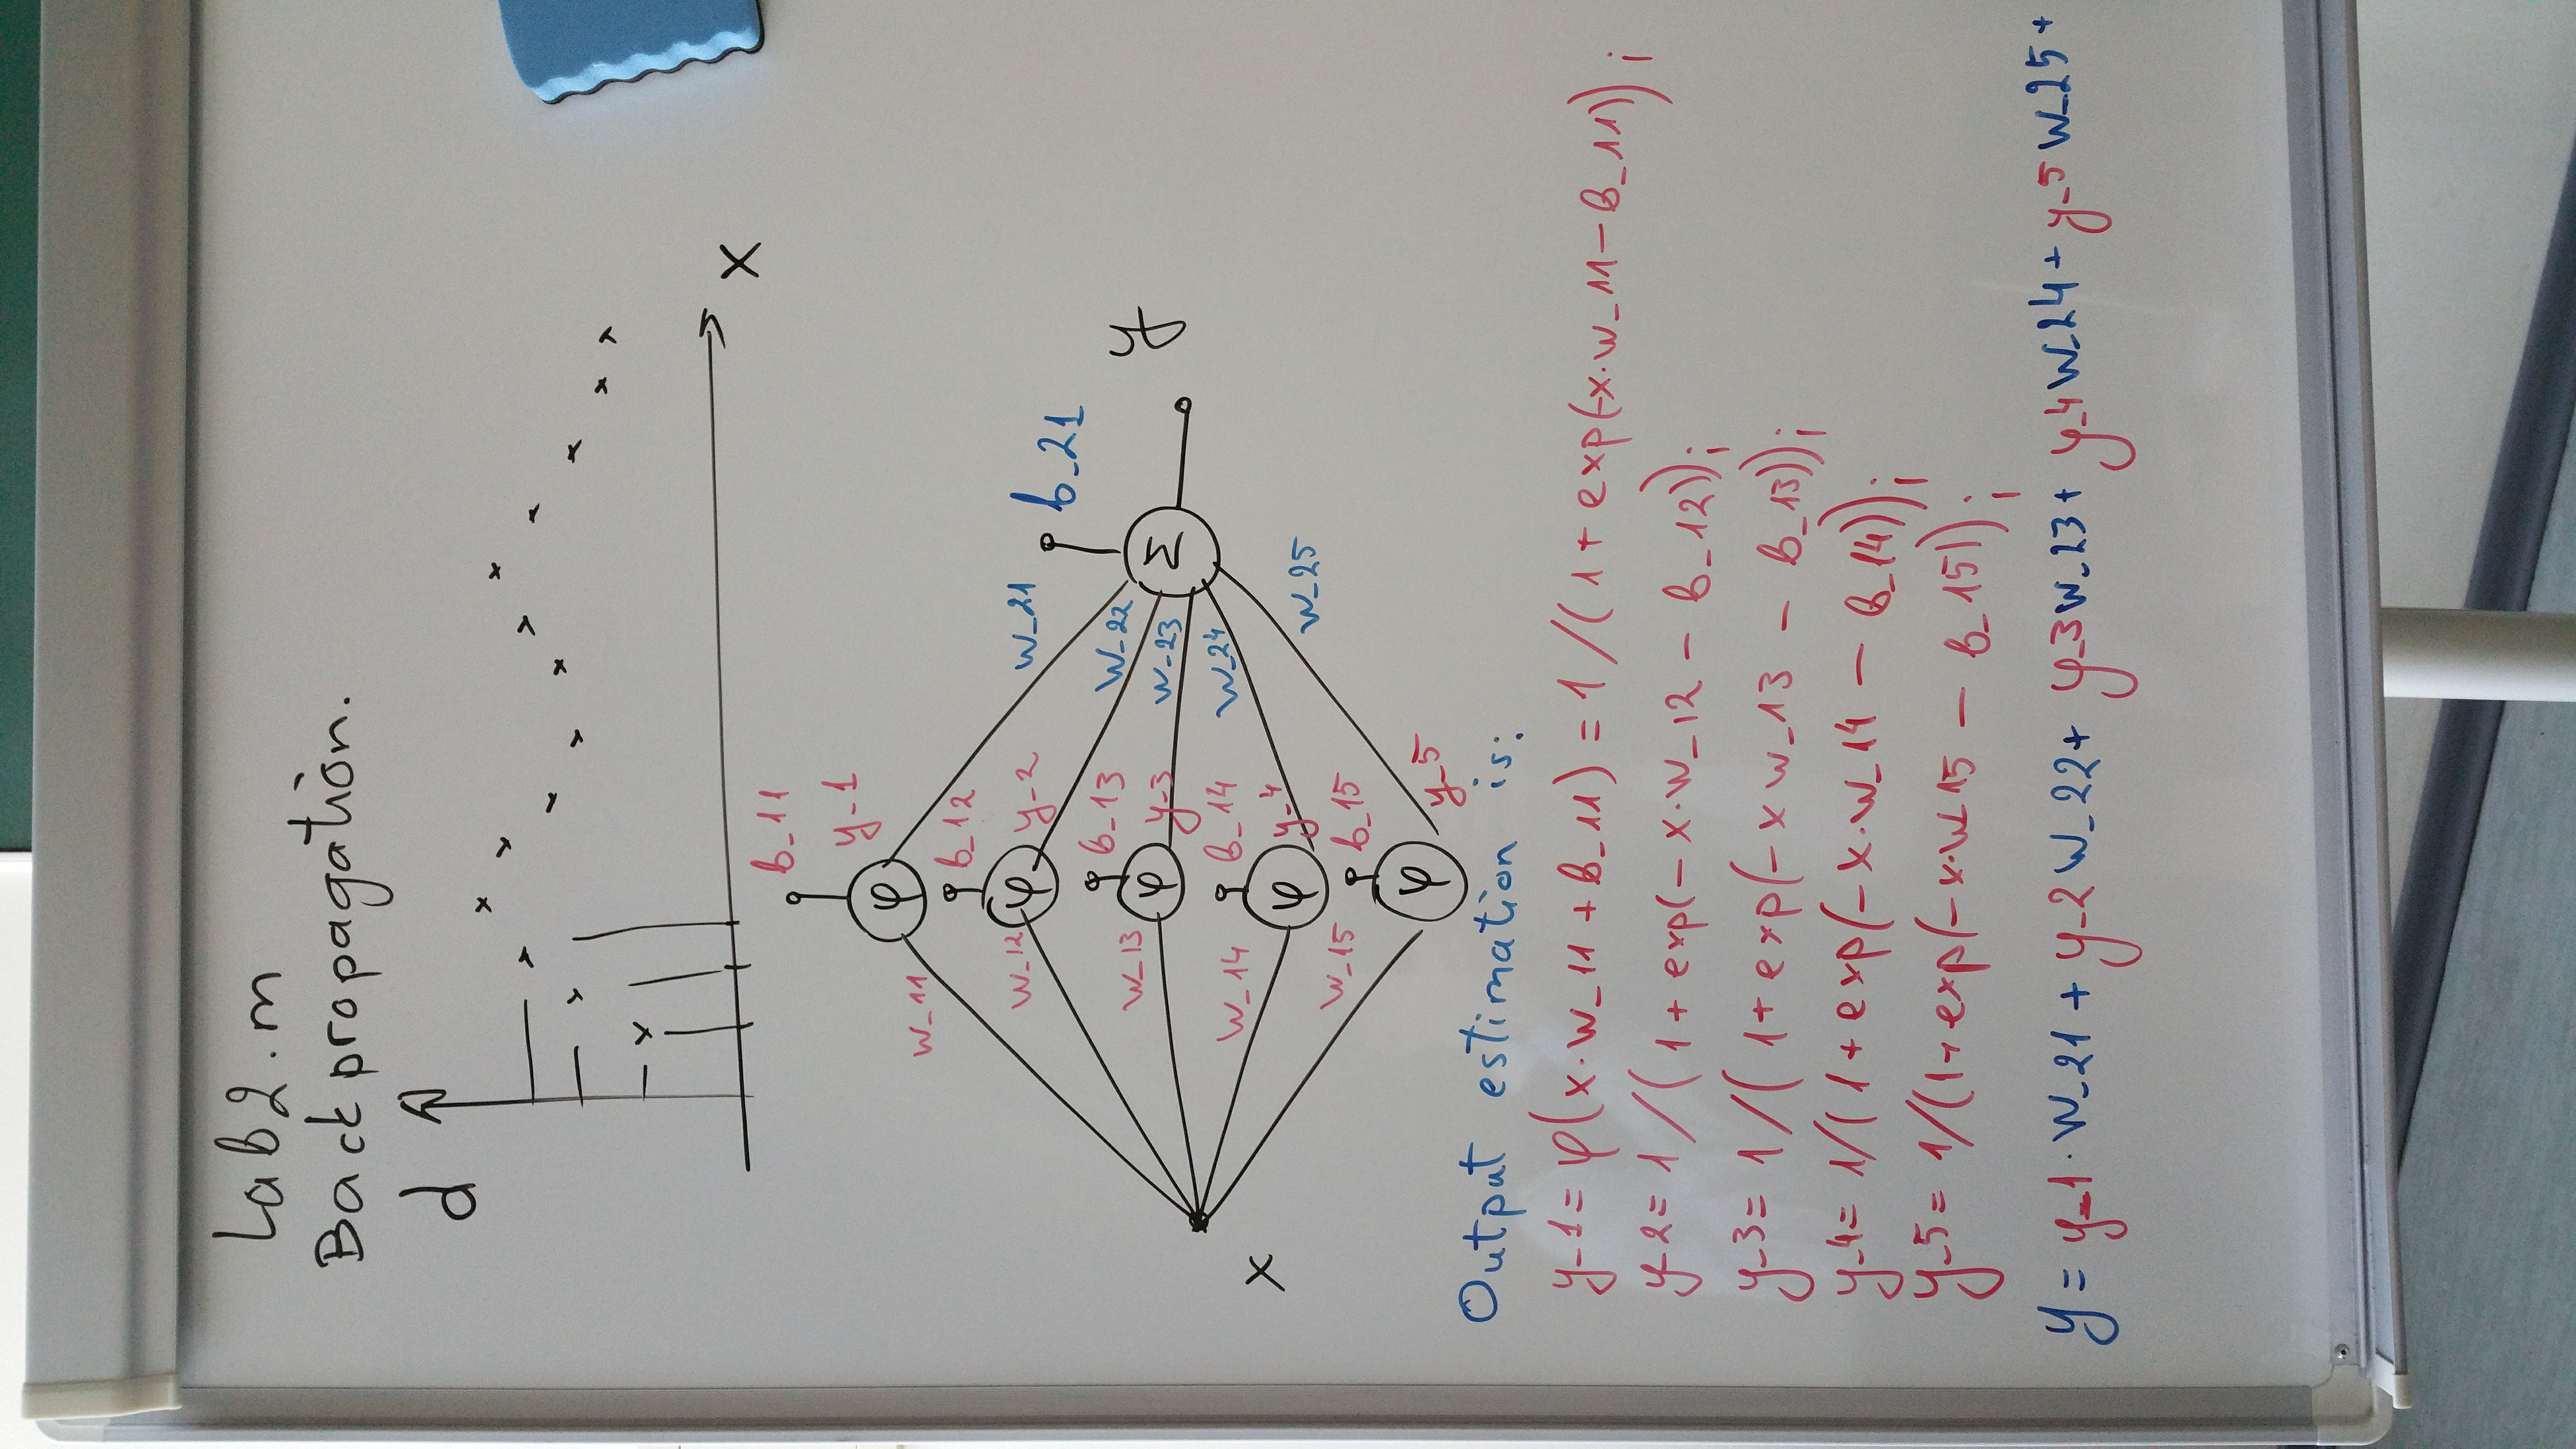 Lab2.m
Backpropagation.
d
x
b_11
y_1
φ
w_11
b_12
w_12 φ y_2
w_21
b_21
b_13
w_22
w_13 φ y_3
w_23
Σ
y
x
w_14
b_14
w_24
φ y_4
w_25
w_15
b_15
φ y_5
Output estimation is:
y_1 = φ(x·w_11 + b_11) = 1/(1 + exp(-x·w_11 - b_11));
y_2 = 1/(1 + exp(-x·w_12 - b_12));
y_3 = 1/(1 + exp(-x w_13 - b_13));
y_4 = 1/(1 + exp(-x·w_14 - b_14));
y_5 = 1/(1 + exp(-x·w_15 - b_15));
y = y_1·w_21 + y_2 w_22 + y_3 w_23 + y_4 w_24 + y_5 w_25 +